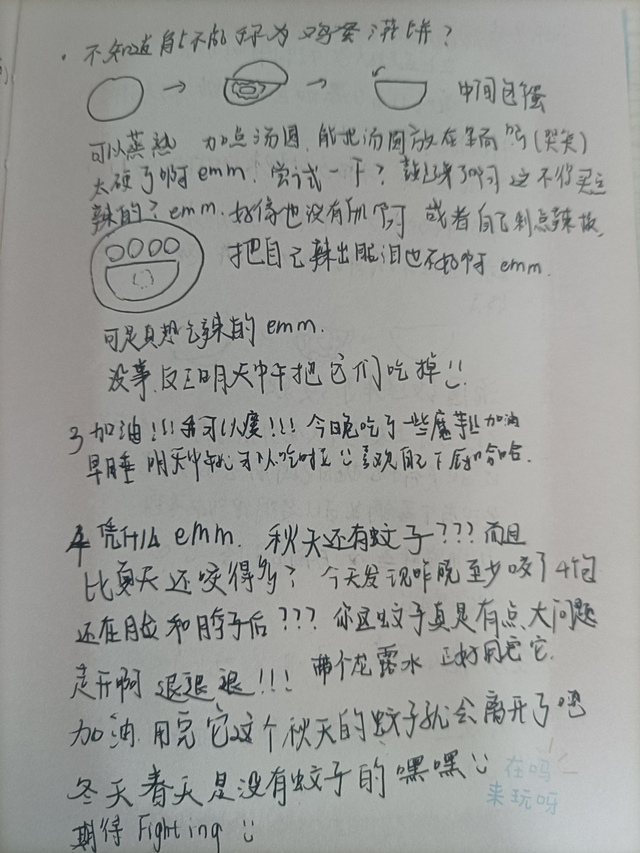 不知道能不能称为鸡蛋灌饼？
中间包蛋
可以蒸熟 加点汤圆，能把汤圆放在里面吗(哭笑)
太硬了啊 emm. 尝试一下？ 这不得买点
辣的？emm. 好像也没有 或者自己制点辣椒,
把自己辣出眼泪也不好 emm.
可是真想吃辣的 emm.
没事,反正明天中午把它们吃掉
3 加油!!! 我可以瘦!!! 今晚吃了一些魔芋 加油
早睡 明天中午就可以吃啦 喜欢自己下厨 哈哈.
4 凭什么 emm. 秋天还有蚊子??? 而且
比夏天还咬得多? 今天发现昨晚至少咬了4包
还在月 和脖子后??? 你这蚊子真是有点大问题
走开啊 退退退!!! 弄个花露水 正好用完它.
加油 用完它这个秋天的蚊子就会离开了吧
冬天春天是没有蚊子的 嘿嘿
在吗
来玩呀
期待 Fighting